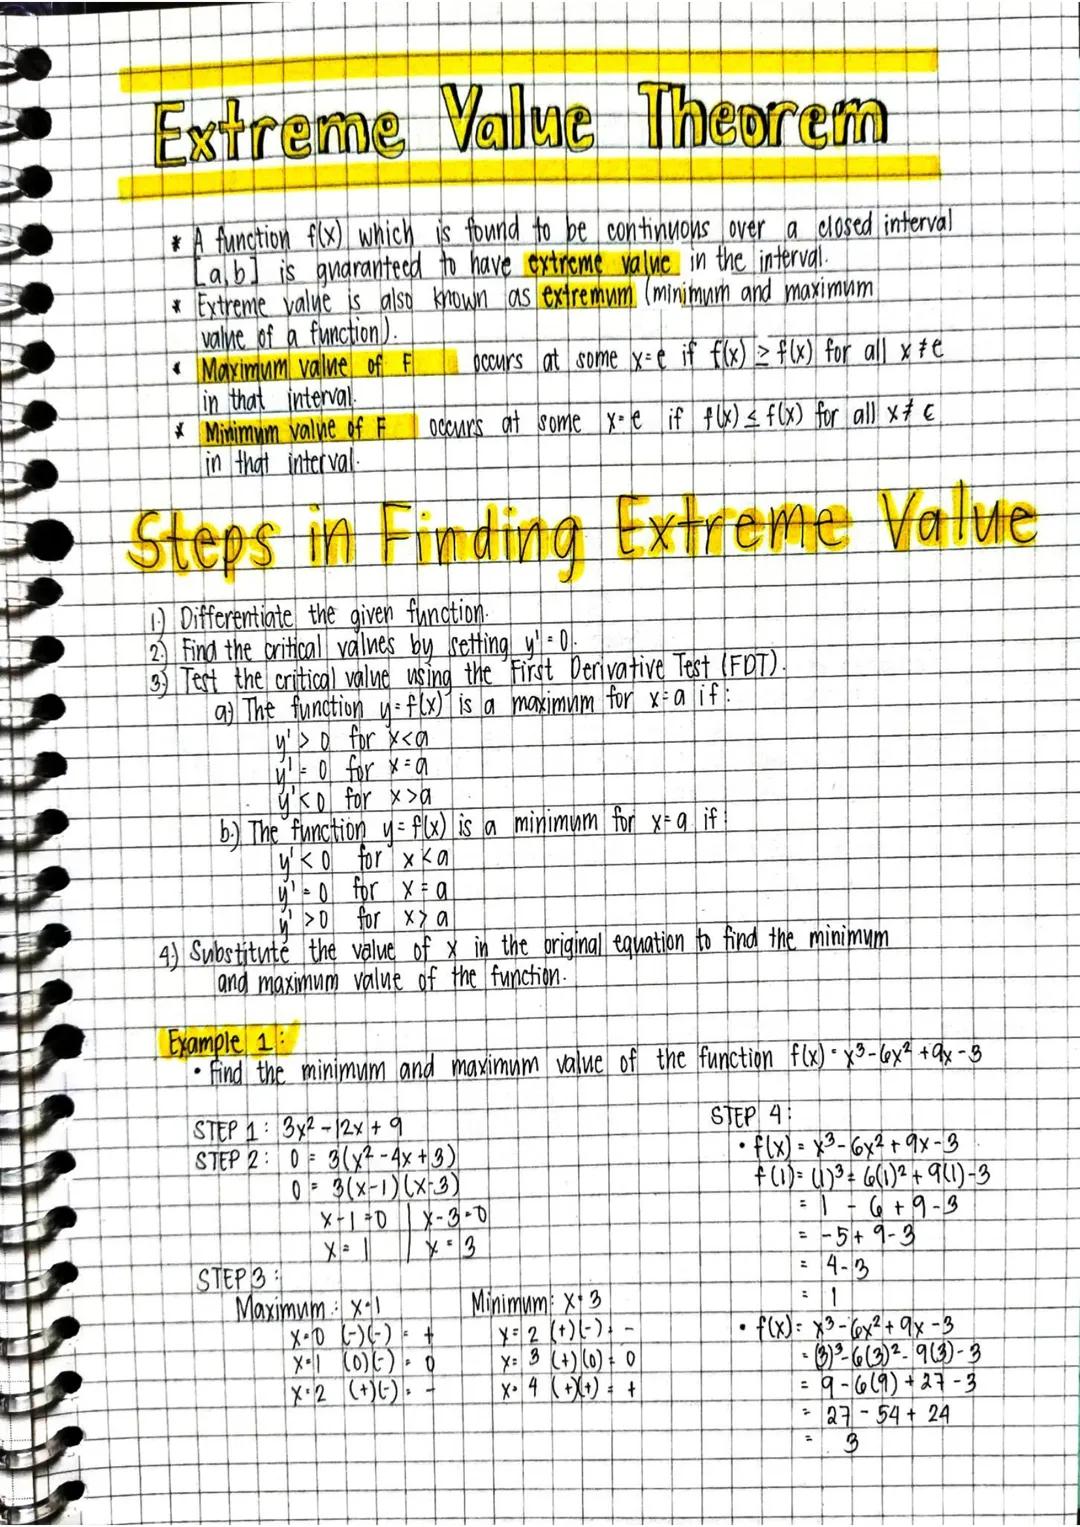 Extreme Value Theorem
* A function f(x) which is found to be continuous over a closed interval
[a,b] is guaranteed to have extreme value in the interval.
* Extreme value is also known as extremum (minimum and maximum
value of a function).
* Maximum value of F occurs at some x=c if f(x) ≥ f(x) for all x ≠ c
in that interval.
* Minimum value of F occurs at some x=c if f(x) ≤ f(x) for all x ≠ c
in that interval.
Steps in Finding Extreme Value
1.) Differentiate the given function.
2.) Find the critical values by setting y' = 0.
3.) Test the critical value using the First Derivative Test (FDT).
a) The function y=f(x) is a maximum for x=a if:
y' > 0 for x<a
y' = 0 for x=a
y'<0 for x>a
b.) The function y=f(x) is a minimum for x=a if:
y' < 0 for x<a
y' = 0 for x=a
y' >0 for x>a
4.) Substitute the value of x in the original equation to find the minimum
and maximum value of the function.
Example 1:
• Find the minimum and maximum value of the function f(x) = x³-6x²+9x-3
STEP 1: 3x²-12x+9
STEP 2: 0 = 3(x²-4x+3)
0 = 3(x-1)(x-3)
x-1=0 | x-3=0
x=1 | x=3
STEP 3:
Maximum: x=1
x=0 (-)(-) = +
x=1 (0)(-) = 0
x=2 (+)(-) = -
Minimum: x=3
x=2 (+)(-) = -
x=3 (+)(0) = 0
x=4 (+)(+) = +
STEP 4:
• f(x) = x³-6x²+9x-3
f(1) = (1)³- 6(1)²+9(1)-3
= 1 - 6 +9-3
= -5+9-3
= 4-3
= 1
• f(x) = x³-6x²+9x-3
= (3)³-6(3)²-9(3)-3
= 9-6(9)+27-3
= 27-54+24
= 3